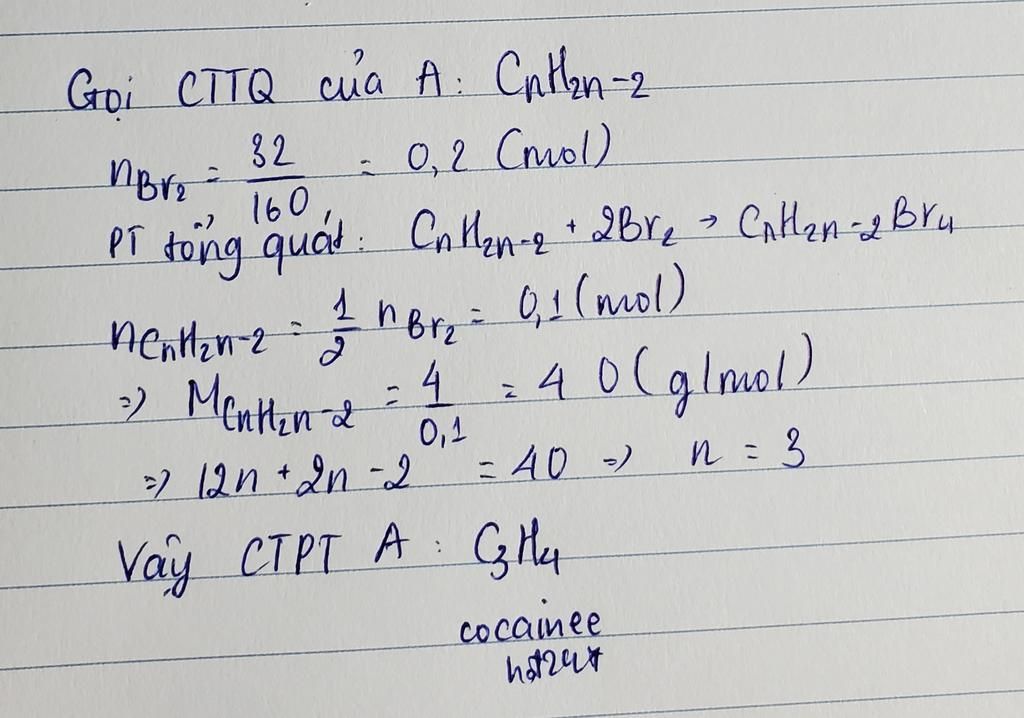 Gọi CTTQ của A: CnH2n-2
nBr2 = 32/160 = 0,2 (mol)
PT tổng quát: CnH2n-2 + 2Br2 → CnH2n-2Br4
nCnH2n-2 = 1/2 nBr2 = 0,1 (mol)
=> MCnH2n-2 = 4/0,1 = 40 (g/mol)
=> 12n + 2n - 2 = 40 => n = 3
Vậy CTPT A: C3H4
cocainee